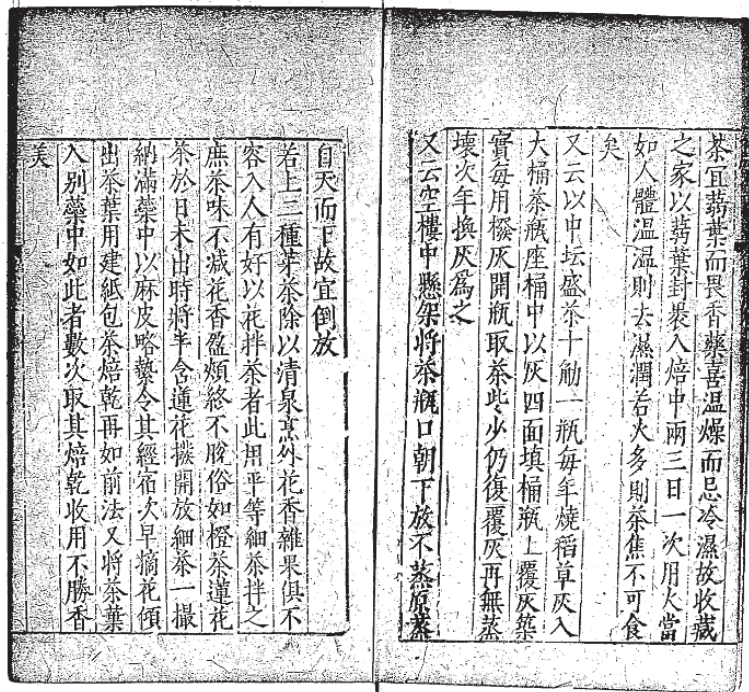 茶宜蒻葉而畏香藥喜温燥而忌冷濕故收藏
之家以蒻葉封裹入焙中兩三日一次用火當
如人體温温則去濕潤若火多則茶焦不可食
矣
又云以中坛盛茶十觔一瓶每年燒稻草灰入
大桶茶瓶座桶中以灰四面填桶瓶上覆灰築
實每用撥灰開瓶取茶些少仍復覆灰再無蒸
壞次年換灰爲之
又云空樓中懸架將茶瓶口朝下放不蒸原蒸
自天而下故宜倒放
若上三種芽茶除以清泉烹外花香雜果俱不
容入人有好以花拌茶者此用平等細茶拌之
庶茶味不减花香盈頰終不脫俗如橙茶蓮花
茶於日未出時將半含蓮花撥開放細茶一撮
納滿蘂中以麻皮略縶令其經宿次早摘花傾
出茶葉用建紙包茶焙乾再如前法又將茶葉
入别蘂中如此者數次取其焙乾收用不勝香
美